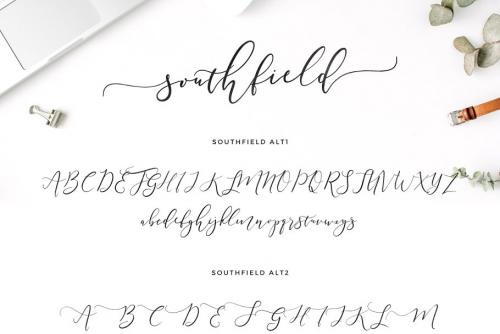 southfield
SOUTHFIELD ALT1
ABCDEFGHIJKLMNOPQRSTUVWXYZ
abcdefghijklmnopqrstuvwxyz
SOUTHFIELD ALT2
A B C D E F G H I J K L M